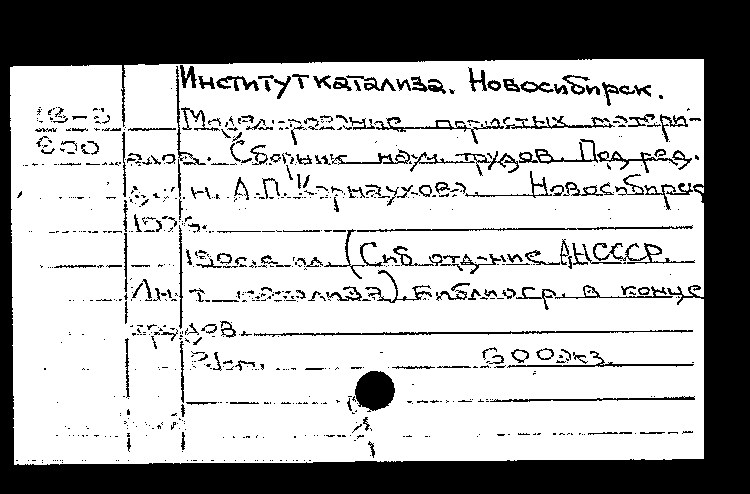 Институт катализа. Новосибирск.
Моделирование пористых матери-
800 алов. Сборник науч. трудов. Под ред.
н. А.П. Карнаухова. Новосибирск

с. с ил. (Сиб отд-ние АНСССР.
Ин-т катализа). Библиогр. в конце
трудов.
600экз.